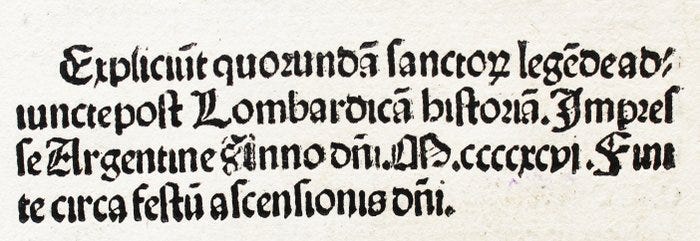 Expliciūt quorundā ſanctoꝝ legēde ad⸗
iuncte poſt Lombardicā hiſtoriā. Impreſ
ſe Argentine Anno dn̄i. M.ccccxcvi. Fini
te circa feſtū aſcenſionis dn̄i.